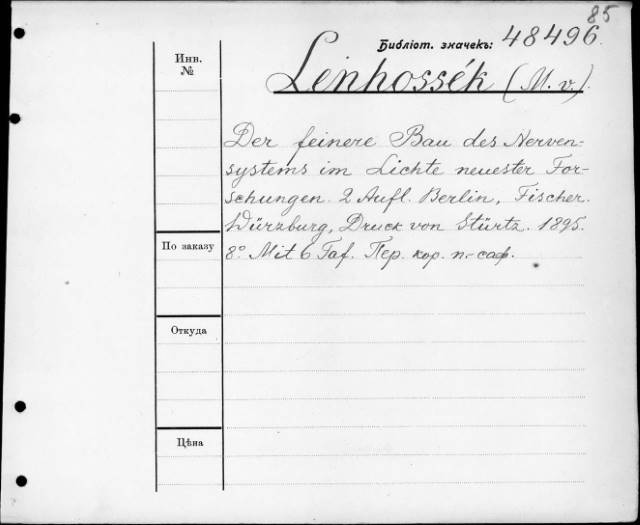 85
Библіот. значекъ: 48496.
Инв.
№
Lenhossék (M. v.).
Der feinere Bau des Nerven-
systems im Lichte neuester For-
schungen. 2 Aufl. Berlin, Fischer.
Würzburg, Druck von Stürtz. 1895.
8º. Mit 6 Taf. Пер. кор. п.-саф.
По заказу
Откуда
Цѣна